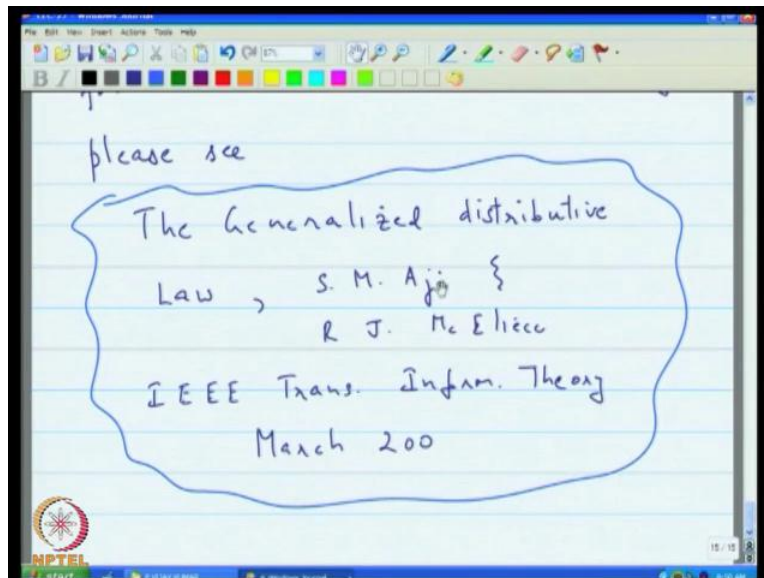 File Edit View Insert Actions Tools Help
please see
The Generalized distributive
Law , S. M. Aji &
R J. Mc Eliece
IEEE Trans. Inform. Theory
March 200
15/15
NPTEL
start